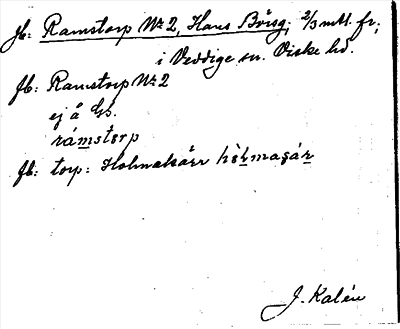 Jb: Ramstorp Nr 2, Hans Börsg; 2/3 mtl. fr;
i Veddige sn. Viske hd.
fb: Ramstorp Nr 2
ej å Gs.
rámstǝrp
fb: torp: Holmakärr
J. Kalén